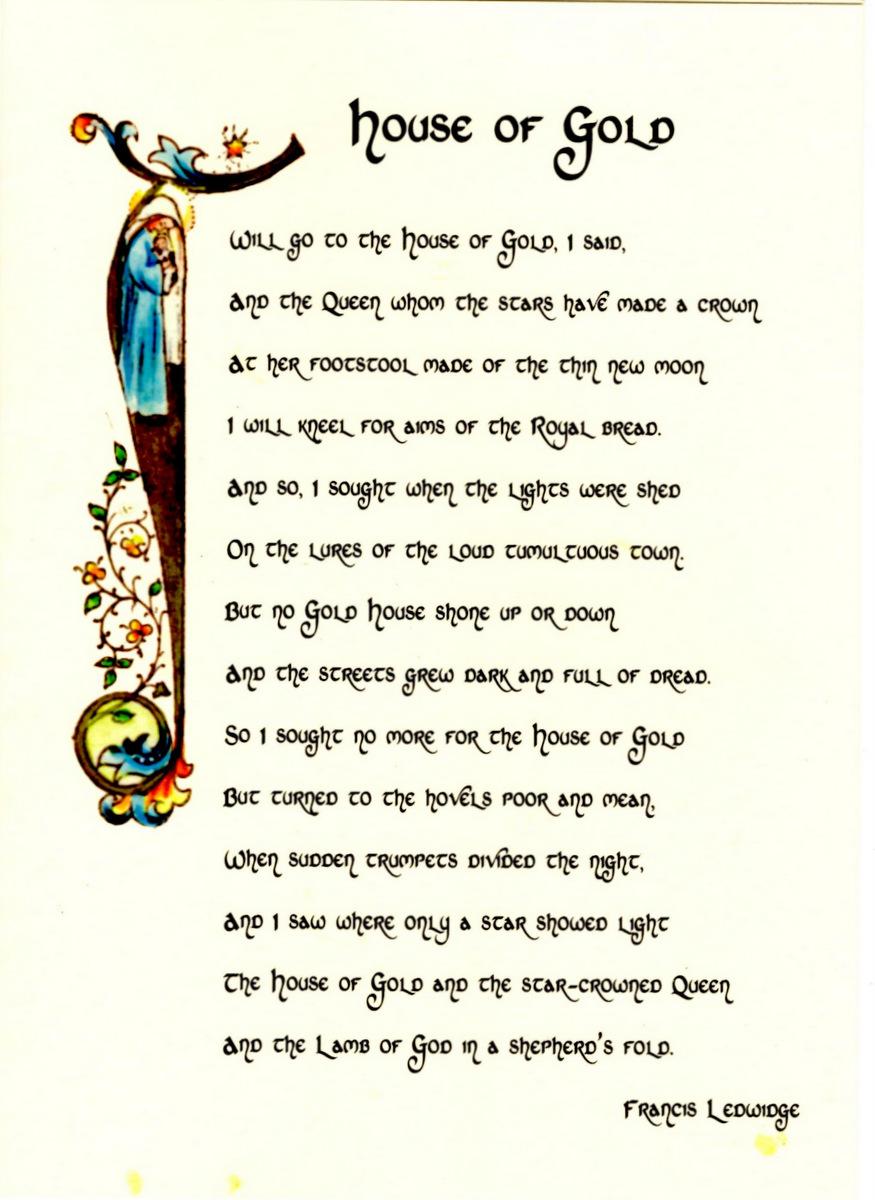 House of Gold
I Will go to the House of Gold, I said,
And the Queen whom the stars have made a crown
At her footstool made of the thin new moon
I will kneel for aims of the Royal bread.
And so, I sought when the lights were shed
On the lures of the loud tumultuous town.
But no Gold House shone up or down
And the streets grew dark and full of dread.
So I sought no more for the House of Gold
But turned to the hovels poor and mean,
When sudden trumpets divided the night,
And I saw where only a star showed light
The House of Gold and the star-crowned Queen
And the Lamb of God in a shepherd's fold.
Francis Ledwidge